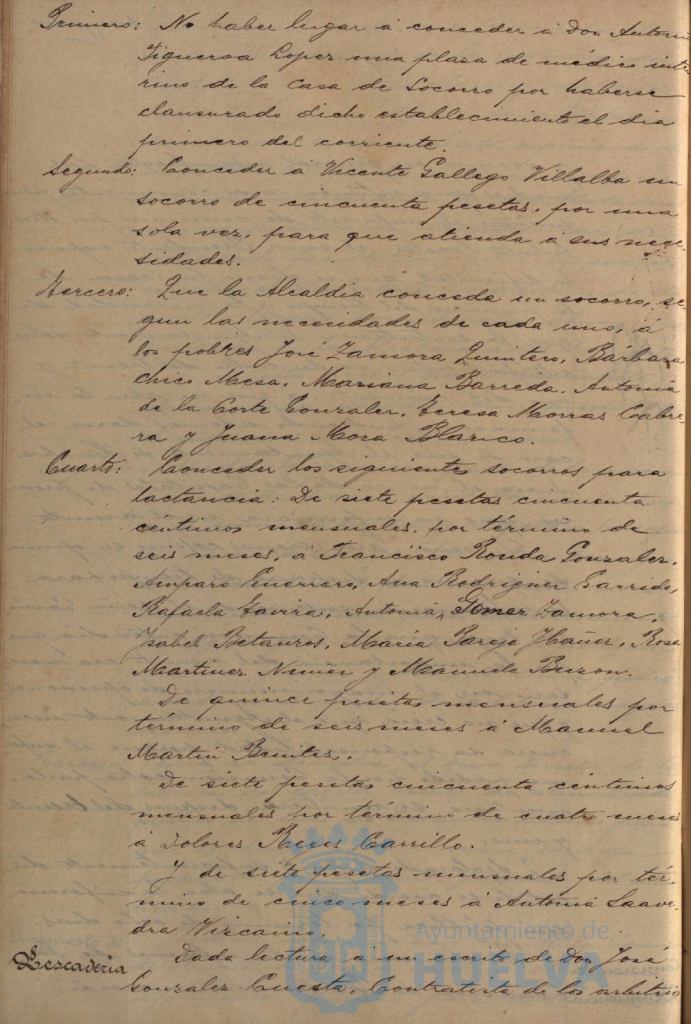 Primero: No haber lugar á conceder á Don Antonio
Figueroa Lopez una plaza de médico inte-
rino de la Casa de Socorro por haberse
clausurado dicho establecimiento el dia
primero del corriente.
Segundo: Conceder á Vicente Gallego Villalba un
socorro de cincuenta pesetas, por una
sola vez, para que atienda á sus nece-
sidades.
Tercero: Que la Alcaldia conceda un socorro, se-
gun las necesidades de cada uno, á
los pobres José Zamora Quintero, Bárbara
Chico Mesa, Mariana Barreda, Antonia
de la Corte Gonzalez, Teresa Morras Cabre-
ra y Juana Mora Blanco.
Cuarto: Conceder los siguientes socorros para
lactancia: De siete pesetas cincuenta
céntimos mensuales, por término de
seis meses, á Francisco Ronda Gonzalez,
Amparo Guerrero, Ana Rodriguez Garrido,
Rafaela Gavira, Antonia Gomez Zamora,
Isabel Betanzos, Maria Pareja Ibañez, Rosa
Martinez Nuñez y Manuela Buzon.
De quince pesetas mensuales por
término de seis meses á Manuel
Martin Benitez.
De siete pesetas cincuenta céntimos
mensuales por término de cuatro meses
á Dolores Reyes Carrillo.
Y de siete pesetas mensuales por tér-
mino de cinco meses á Antonia Saave-
dra Vizcaino.
Pescaderia
Dada lectura á un escrito de Don José
Gonzalez Cuesta, Contratista de los arbitrios
Ayuntamiento de
HUELVA